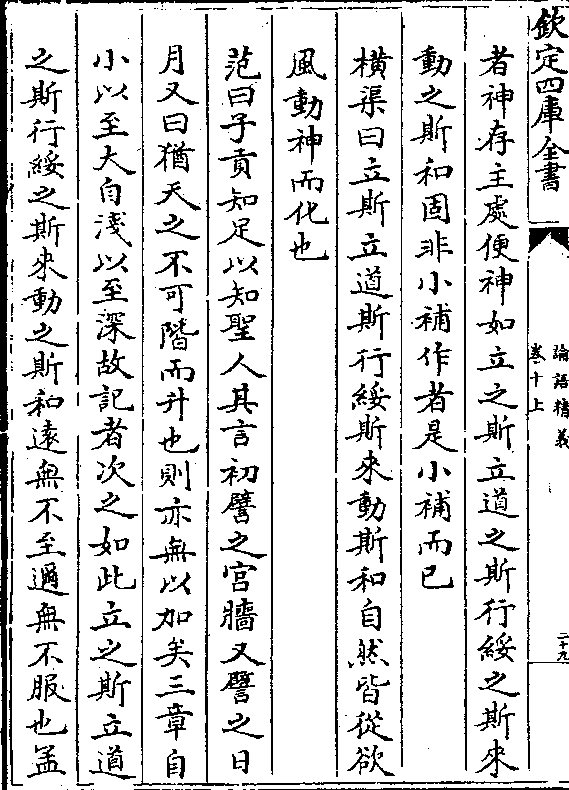 欽定四庫全書
論語精義
卷十上
二十九
者神存主處便神如立之斯立道之斯行綏之斯來
動之斯和固非小補作者是小補而已
橫渠曰立斯立道斯行綏斯來動斯和自然皆從欲
風動神而化也
范曰子貢知足以知聖人其言初譬之宮牆又譬之日
月又曰猶天之不可階而升也則亦無以加矣三章自
小以至大自淺以至深故記者次之如此立之斯立道
之斯行綏之斯來動之斯和遠無不至邇無不服也孟